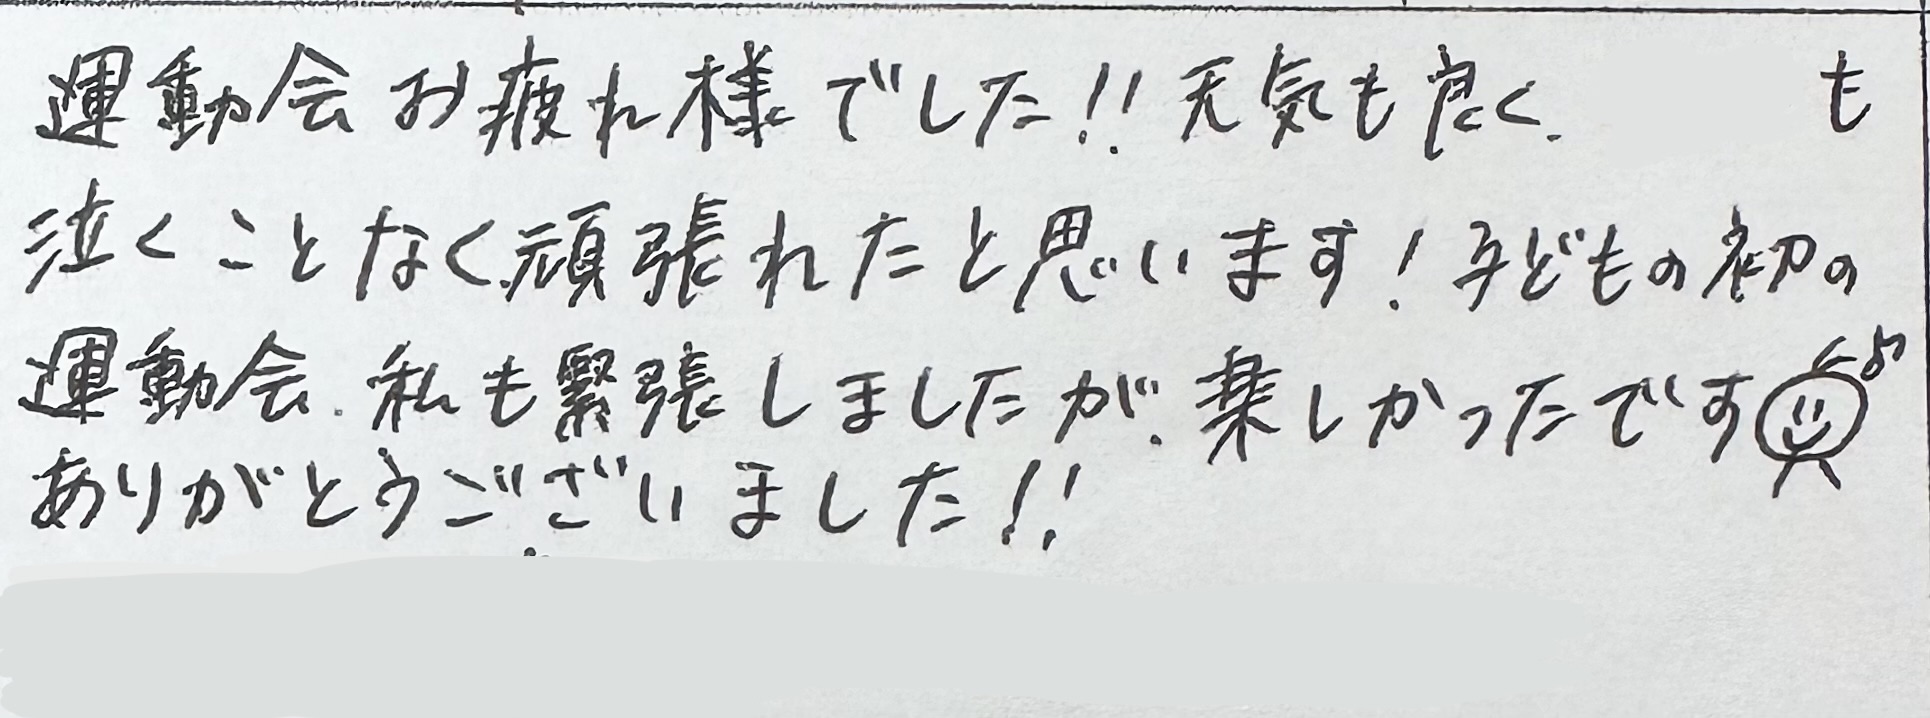 運動会お疲れ様でした!!天気も良く、 も
泣くことなく、頑張れたと思います!子どもの初の
運動会、私も緊張しましたが、楽しかったです♪
ありがとうございました!!